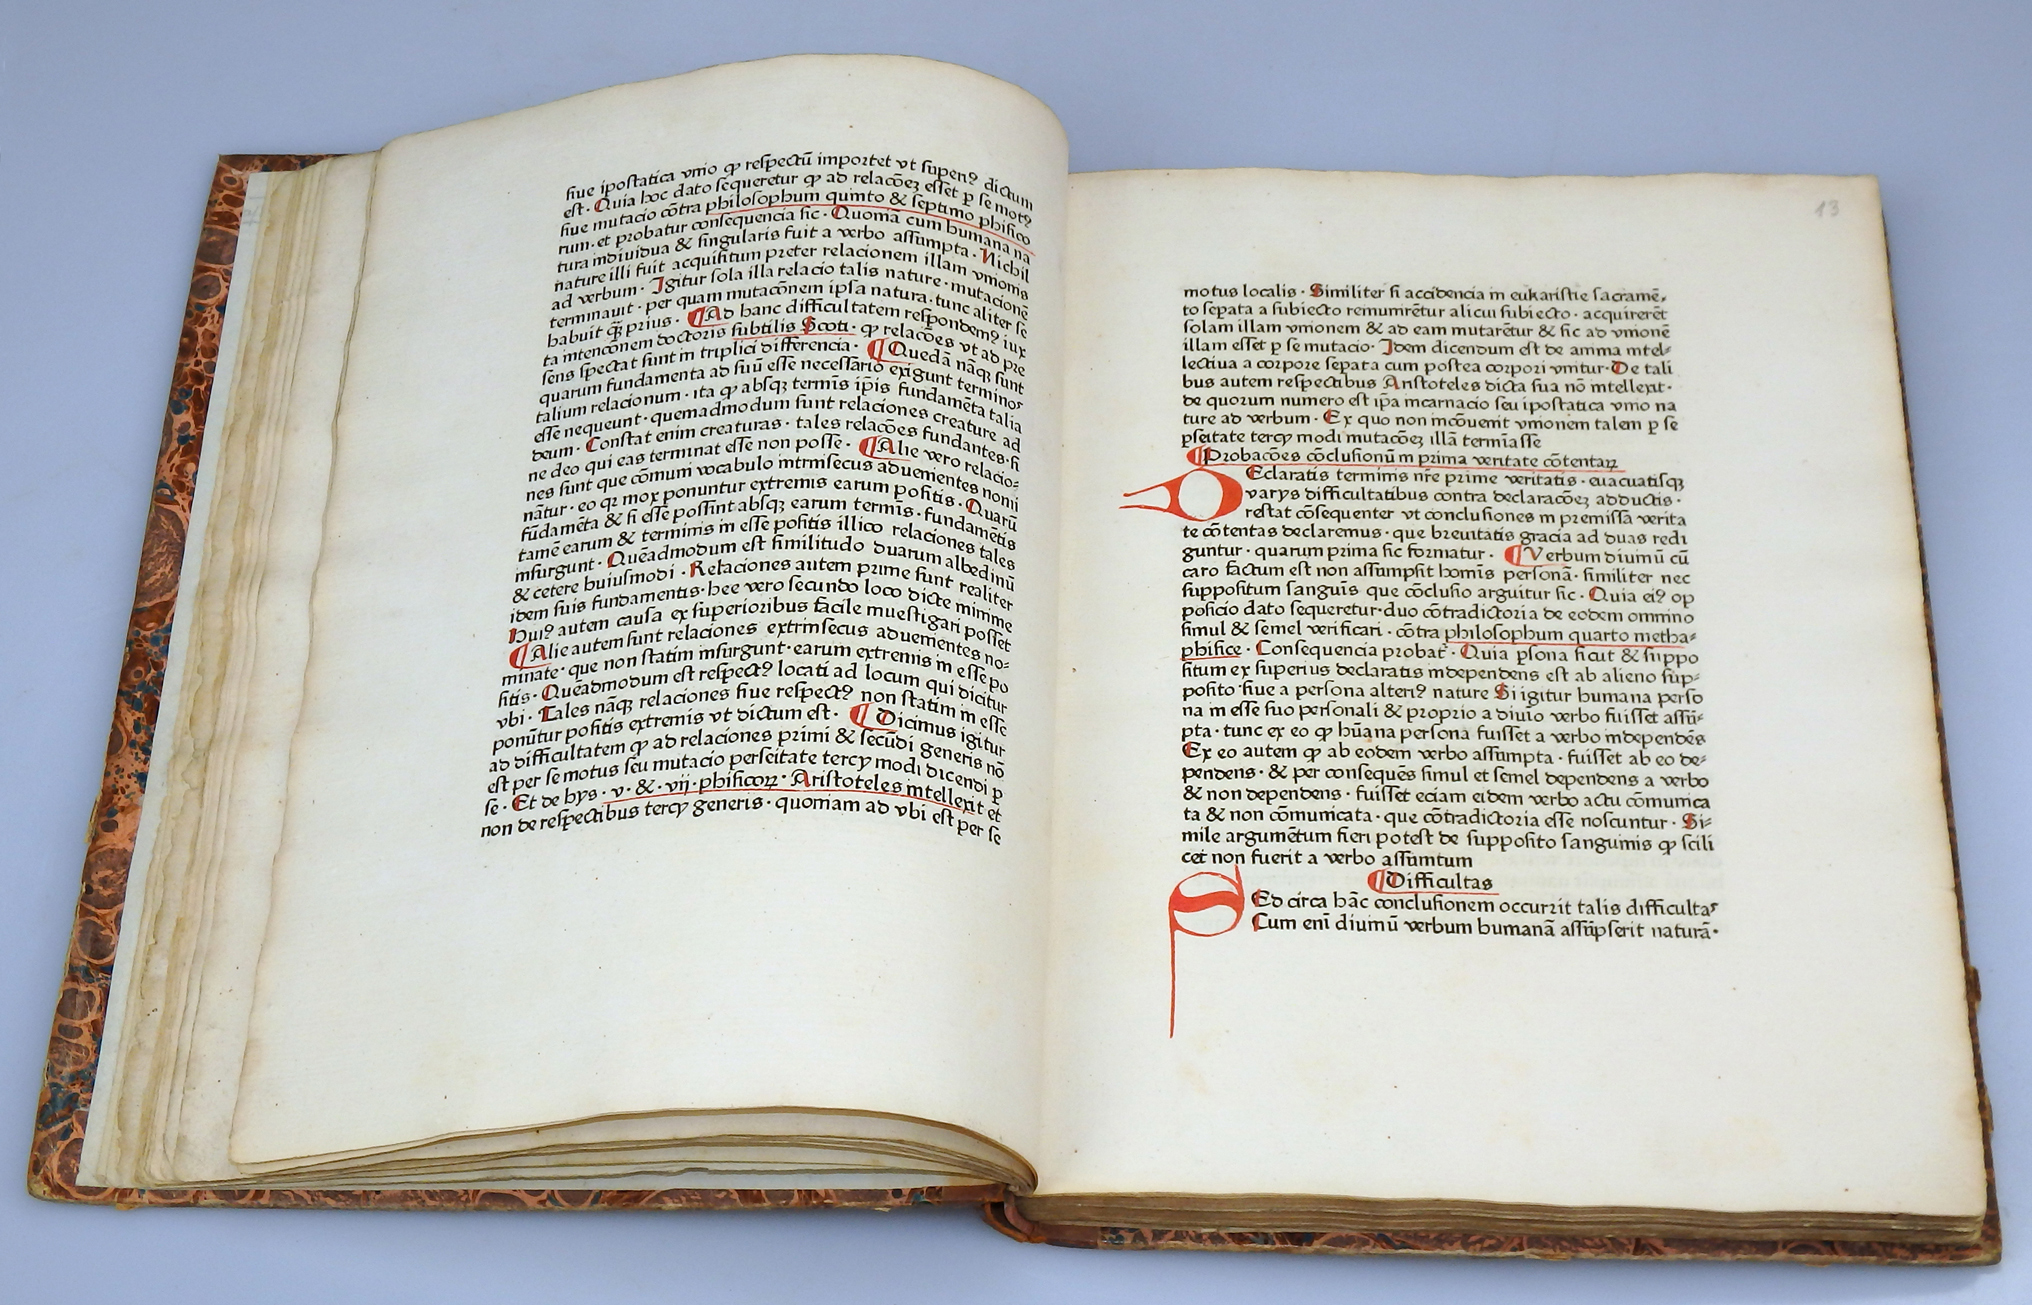 siue ipostatica vnio ꝙ respectū importet vt superiꝰ dictum
est· Quia hoc dato sequeretur ꝙ ad relacōeȝ esset ꝑ se motꝰ
siue mutacio cōtra philosophum quinto & septimo phisico
rum· et probatur consequencia sic· Quoniā cum humana na
tura indiuidua & singularis fuit a verbo assumpta· Nichil
nature illi fuit acquisitum preter relacionem illam vnionis
ad verbum· Igitur sola illa relacio talis nature· mutacionē
terminauit· per quam mutacōnem ipsa natura· tunc aliter se
habuit qȝ̄ prius· ¶Ad hanc difficultatem respondemꝰ iux
ta intencōnem doctoris subtilis Scoti· ꝙ relacōes vt ad pre
sens spectat sunt in triplici differencia· ¶Quedā nāqȝ sunt
quarum fundamenta ad suū esse necessario exigunt terminos
talium relacionum· ita ꝙ absqȝ termīs ip̄is fundamēta talia
esse nequeunt· quemadmodum sunt relaciones creature ad
deum· Constat enim creaturas· tales relacōes fundantes· si
ne deo qui eas terminat esse non posse· ¶Alie vero relacio⸗
nes sunt que cōmuni vocabulo intrinsecus aduenientes nomi
nātur· eo qꝛ mox ponuntur extremis earum positis· Quarū
fūdamēta & si esse possint absqȝ earum termīs· fundamētis
tamē earum & terminis in esse positis illico relaciones tales
insurgunt· Quēadmodum est similitudo duarum albedinū
& cetere huiusmodi· Relaciones autem prime sunt realiter
idem suis fundamentis· hee vero secundo loco dicte minime
Huiꝰ autem causa ex superioribus facile inuestigari posset
¶Alie autem sunt relaciones extrinsecus aduenientes no⸗
minate· que non statim insurgunt· earum extremis in esse po
sitis· Quēadmodum est respectꝰ locati ad locum qui dicitur
vbi· Tales nāqȝ relaciones siue respectꝰ non statim in esse
ponūtur positis extremis vt dictum est· ¶Dicimus igitur
ad difficultatem ꝙ ad relaciones primi & secūdi generis nō
est per se motus seu mutacio perseitate tercij modi dicendi ꝑ
se· Et de hijs· v· & · vij· phisicoꝝ· Aristoteles intellexit et
non de respectibus tercij generis· quoniam ad vbi est per se
13
motus localis· Similiter si accidencia in eukaristie sacramē⸗
to seꝑata a subiecto reunirētur alicui subiecto· acquirerēt
solam illam vnionem & ad eam mutarētur & sic ad vnionē
illam esset ꝑ se mutacio· Idem dicendum est de anima intel⸗
lectiua a corpore seꝑata cum postea corpori vnitur· De tali
bus autem respectibus Aristoteles dicta sua nō intellexit·
de quorum numero est ip̄a incarnacio seu ipostatica vnio na
ture ad verbum· Ex quo non incōuenit vnionem talem ꝑ se
ꝑseitate tercij modi mutacōeȝ illā termīasse
¶Probacōes cōclusionū in prima veritate cōtentaꝝ
DEclaratis terminis nr̄e prime veritatis· euacuatisqȝ
varijs difficultatibus contra declaracōeȝ adductis·
restat cōsequenter vt conclusiones in premissa verita
te cōtentas declaremus· que breuitatis gracia ad duas redi
guntur· quarum prima sic formatur· ¶Verbum diuinū cū
caro factum est non assumpsit homīs personā· similiter nec
suppositum sanguīs que cōclusio arguitur sic· Quia eiꝰ op
posicio dato sequeretur· duo cōtradictoria de eodem omnino
simul & semel verificari· cōtra philosophum quarto metha⸗
phisice· Consequencia probat̄· Quia ꝑsona sicut & suppo
situm ex superius declaratis independens est ab alieno sup⸗
posito siue a persona alteriꝰ nature Si igitur humana perso
na in esse suo personali & proprio a diuīo verbo fuisset assū⸗
pta· tunc ex eo ꝙ hūana persona fuisset a verbo independēs
Ex eo autem ꝙ ab eodem verbo assumpta· fuisset ab eo de⸗
pendens· & per consequēs simul et semel dependens a verbo
& non dependens· fuisset eciam eidem verbo actu cōmunica
ta & non cōmunicata· que cōtradictoria esse noscuntur· Si⸗
mile argumētum fieri potest de supposito sanguinis ꝙ scili
cet non fuerit a verbo assumtum
¶Difficultas
SEd circa hāc conclusionem occurrit talis difficultas
Cum eni̅ diuinū verbum humanā assūpserit naturā·